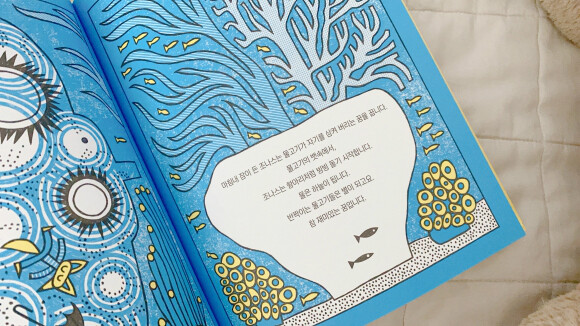 마침내 잠이 든 조나스는 물고기가 자기를 삼켜 버리는 꿈을 꿉니다.
물고기의 뱃속에서,
조나스는 항아리처럼 빙빙 돌기 시작합니다.
물은 하늘이 됩니다.
반짝이는 물고기들은 별이 되고요.
참 재미있는 꿈입니다.